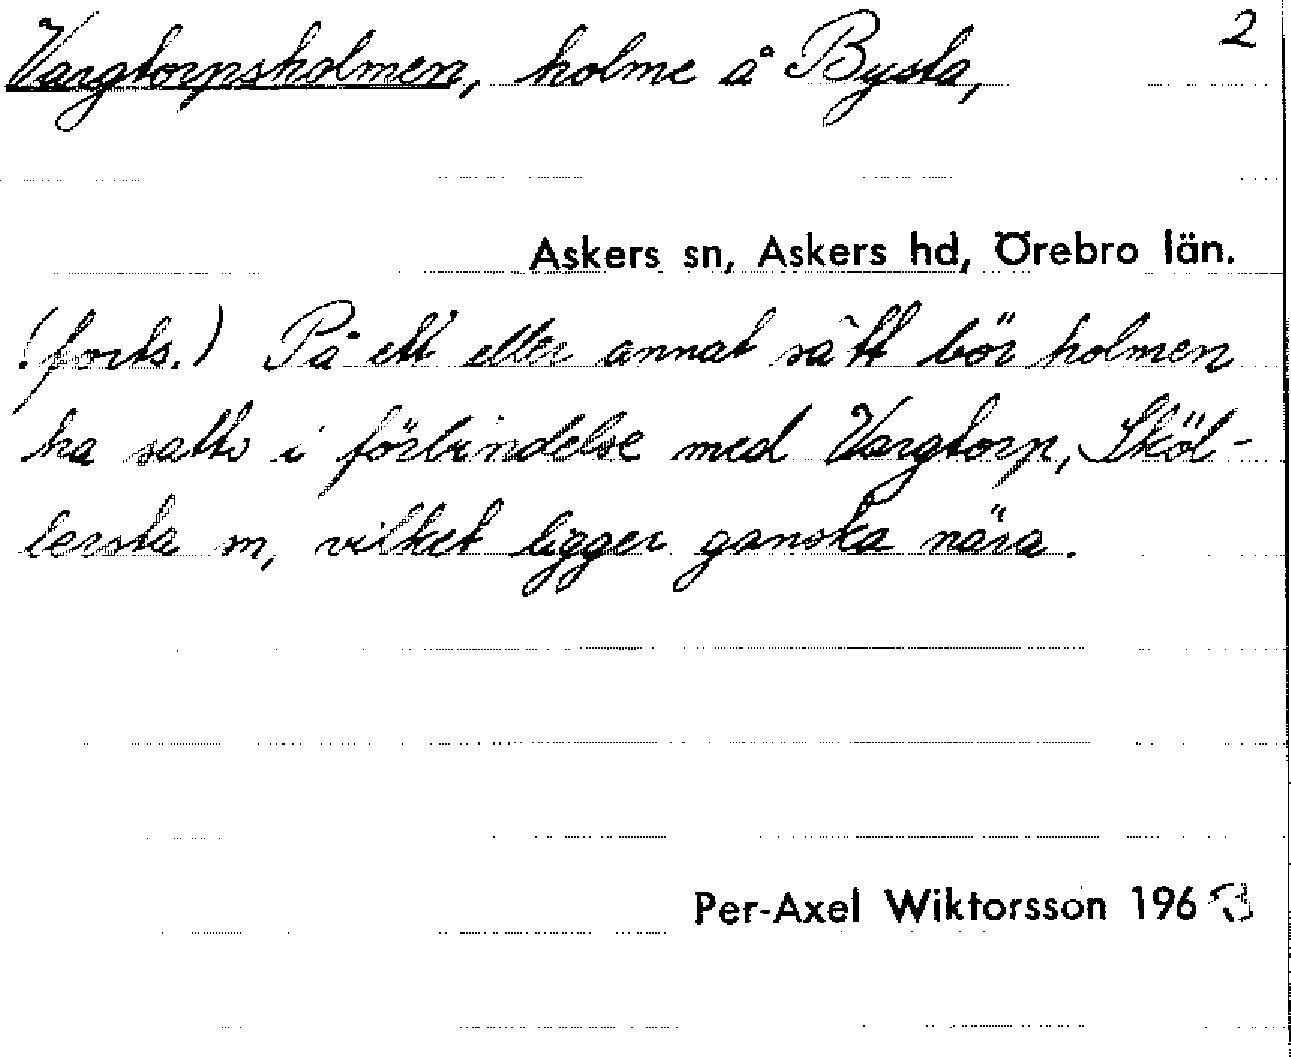 Vargtorpsholmen, holme å Bysta, 2
Askers sn, Askers hd, Örebro län.
(forts.) På ett eller annat sätt bör holmen
ha satts i förbindelse med Vargtorp, Sköl-
lersta sn, vilket ligger ganska nära.
Per-Axel Wiktorsson 196